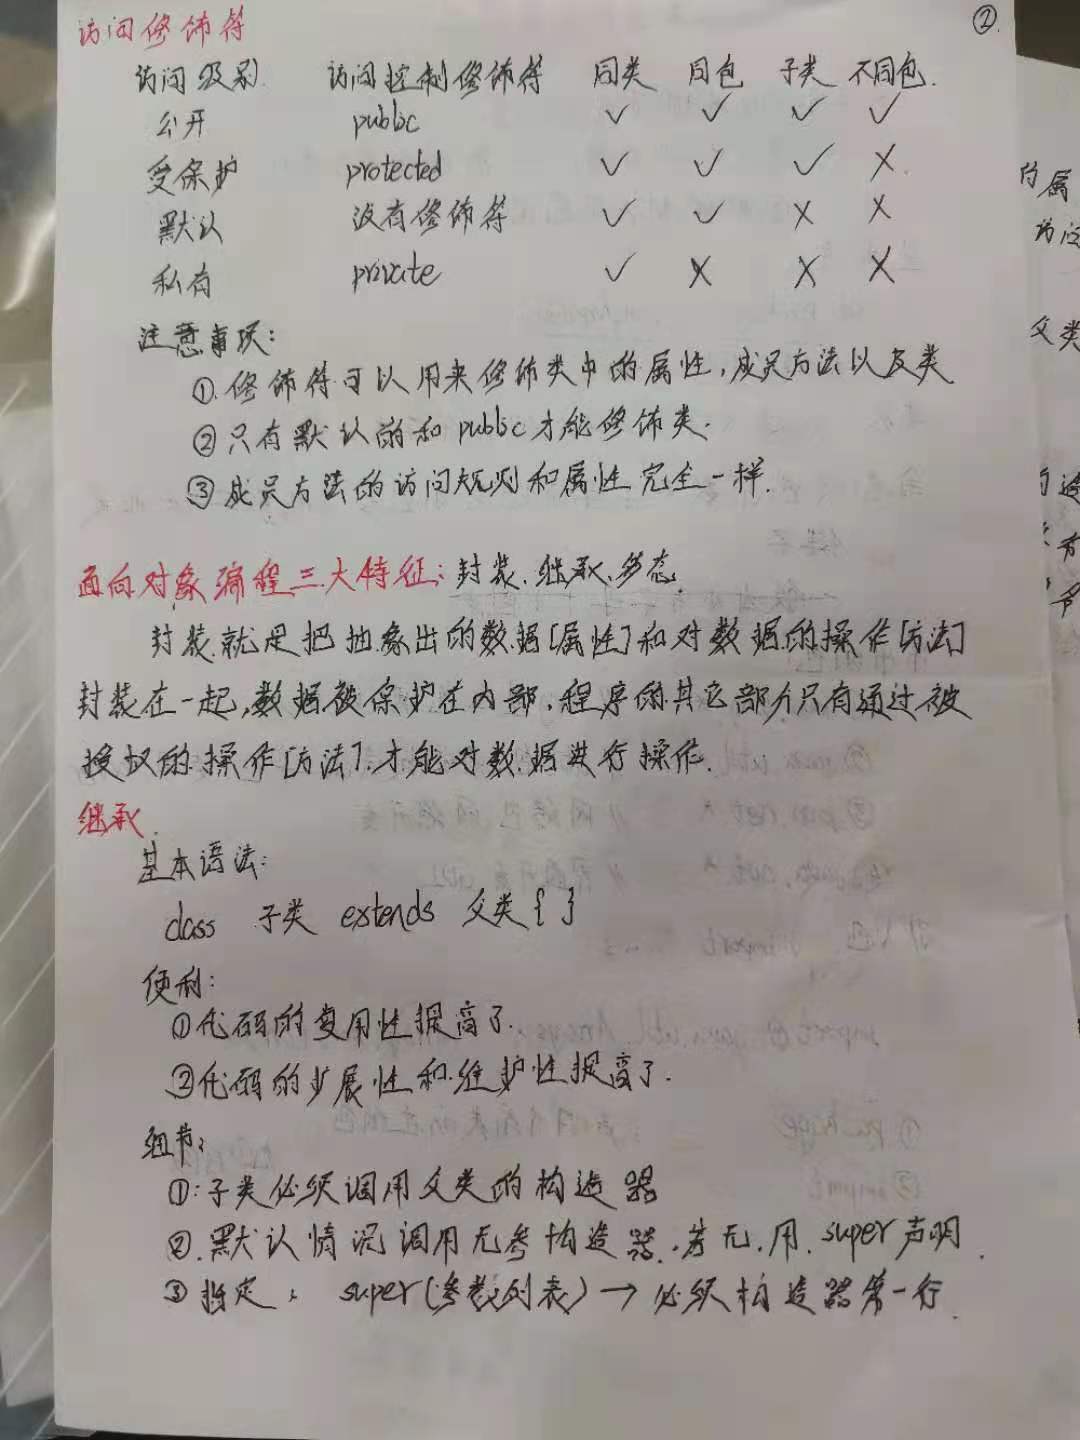 访问修饰符
②.
访问级别 访问控制修饰符 同类 同包 子类 不同包.
公开 public ✓ ✓ ✓ ✓
受保护 protected ✓ ✓ ✓ ×
默认 没有修饰符 ✓ ✓ × ×
私有 private ✓ × × ×
注意事项:
①.修饰符可以用来修饰类中的属性,成员方法以及类
②只有默认的和public才能修饰类.
③成员方法的访问规则和属性完全一样.
面向对象编程三大特征:封装.继承.多态.
封装就是把抽象出的数据[属性]和对数据的操作[方法]
封装在一起,数据被保护在内部,程序的其它部分只有通过被
授权的操作[方法].才能对数据进行操作.
继承.
基本语法:
class 子类 extends 父类{ }
便利:
①代码的复用性提高了.
②代码的扩展性和维护性提高了.
细节:
①:子类必须调用父类的构造器
②.默认情况调用无参构造器.若无.用.super声明.
③指定: super(参数列表)→必须构造器第一行.
的属
访问
父类